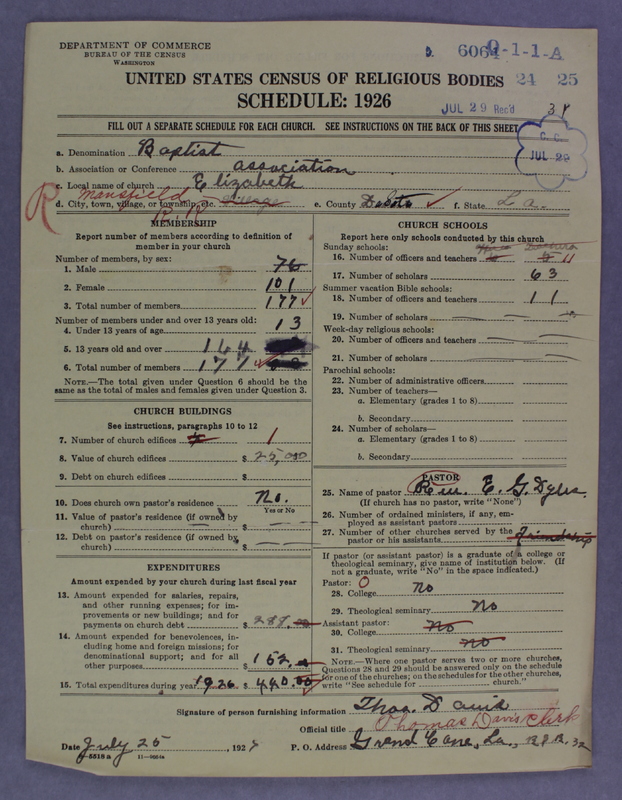 DEPARTMENT OF COMMERCE
BUREAU OF THE CENSUS
WASHINGTON
UNITED STATES CENSUS OF RELIGIOUS BODIES 24 25
SCHEDULE: 1926
JUL 29 Rec'd
FILL OUT A SEPARATE SCHEDULE FOR EACH CHURCH. SEE INSTRUCTIONS ON THE BACK OF THIS SHEET
C. C.
JUL 29
a. Denomination Baptist
b. Association or Conference association
c. Local name of church Elizabeth
Mansfield
d. City, town, village, or township, etc.
e. County DeSoto
f. State La.
R
R.R
MEMBERSHIP
Report number of members according to definition of
member in your church
Number of members, by sex:
1. Male 76
2. Female 101
3. Total number of members 177
Number of members under and over 13 years old:
4. Under 13 years of age 13
5. 13 years old and over 164
6. Total number of members 177
NOTE.—The total given under Question 6 should be the
same as the total of males and females given under Question 3.
CHURCH BUILDINGS
See instructions, paragraphs 10 to 12
7. Number of church edifices 1
8. Value of church edifices $
9. Debt on church edifices $
10. Does church own pastor's residence No.
Yes or No
11. Value of pastor's residence (if owned by
church) $
12. Debt on pastor's residence (if owned by
church) $
EXPENDITURES
Amount expended by your church during last fiscal year
13. Amount expended for salaries, repairs,
and other running expenses; for im-
provements or new buildings; and for
payments on church debt $ 288.
14. Amount expended for benevolences, in-
cluding home and foreign missions; for
denominational support; and for all
other purposes $ 152.
15. Total expenditures during year 1926 $ 440.00
CHURCH SCHOOLS
Report here only schools conducted by this church
Sunday schools:
16. Number of officers and teachers 11
17. Number of scholars 63
Summer vacation Bible schools:
18. Number of officers and teachers 11
19. Number of scholars
Week-day religious schools:
20. Number of officers and teachers
21. Number of scholars
Parochial schools:
22. Number of administrative officers
23. Number of teachers—
a. Elementary (grades 1 to 8)
b. Secondary
24. Number of scholars—
a. Elementary (grades 1 to 8)
b. Secondary
PASTOR
25. Name of pastor Rev. E. G. Dyles.
(If church has no pastor, write "None")
26. Number of ordained ministers, if any, em-
ployed as assistant pastors
27. Number of other churches served by the Friendship
pastor or his assistants
If pastor (or assistant pastor) is a graduate of a college or
theological seminary, give name of institution below. (If
not a graduate, write "No" in the space indicated.)
Pastor: O
28. College No
29. Theological seminary No
Assistant pastor:
30. College No
31. Theological seminary No
NOTE.—Where one pastor serves two or more churches,
Questions 28 and 29 should be answered only on the schedule
for one of the churches; on the schedules for the other churches,
write "See schedule for church."
Signature of person furnishing information Thos. Davis
Official title Thomas Davis Clerk
Date July 25, 1927
P. O. Address Grand Cane, La.,
8-5518 a 11—9664a